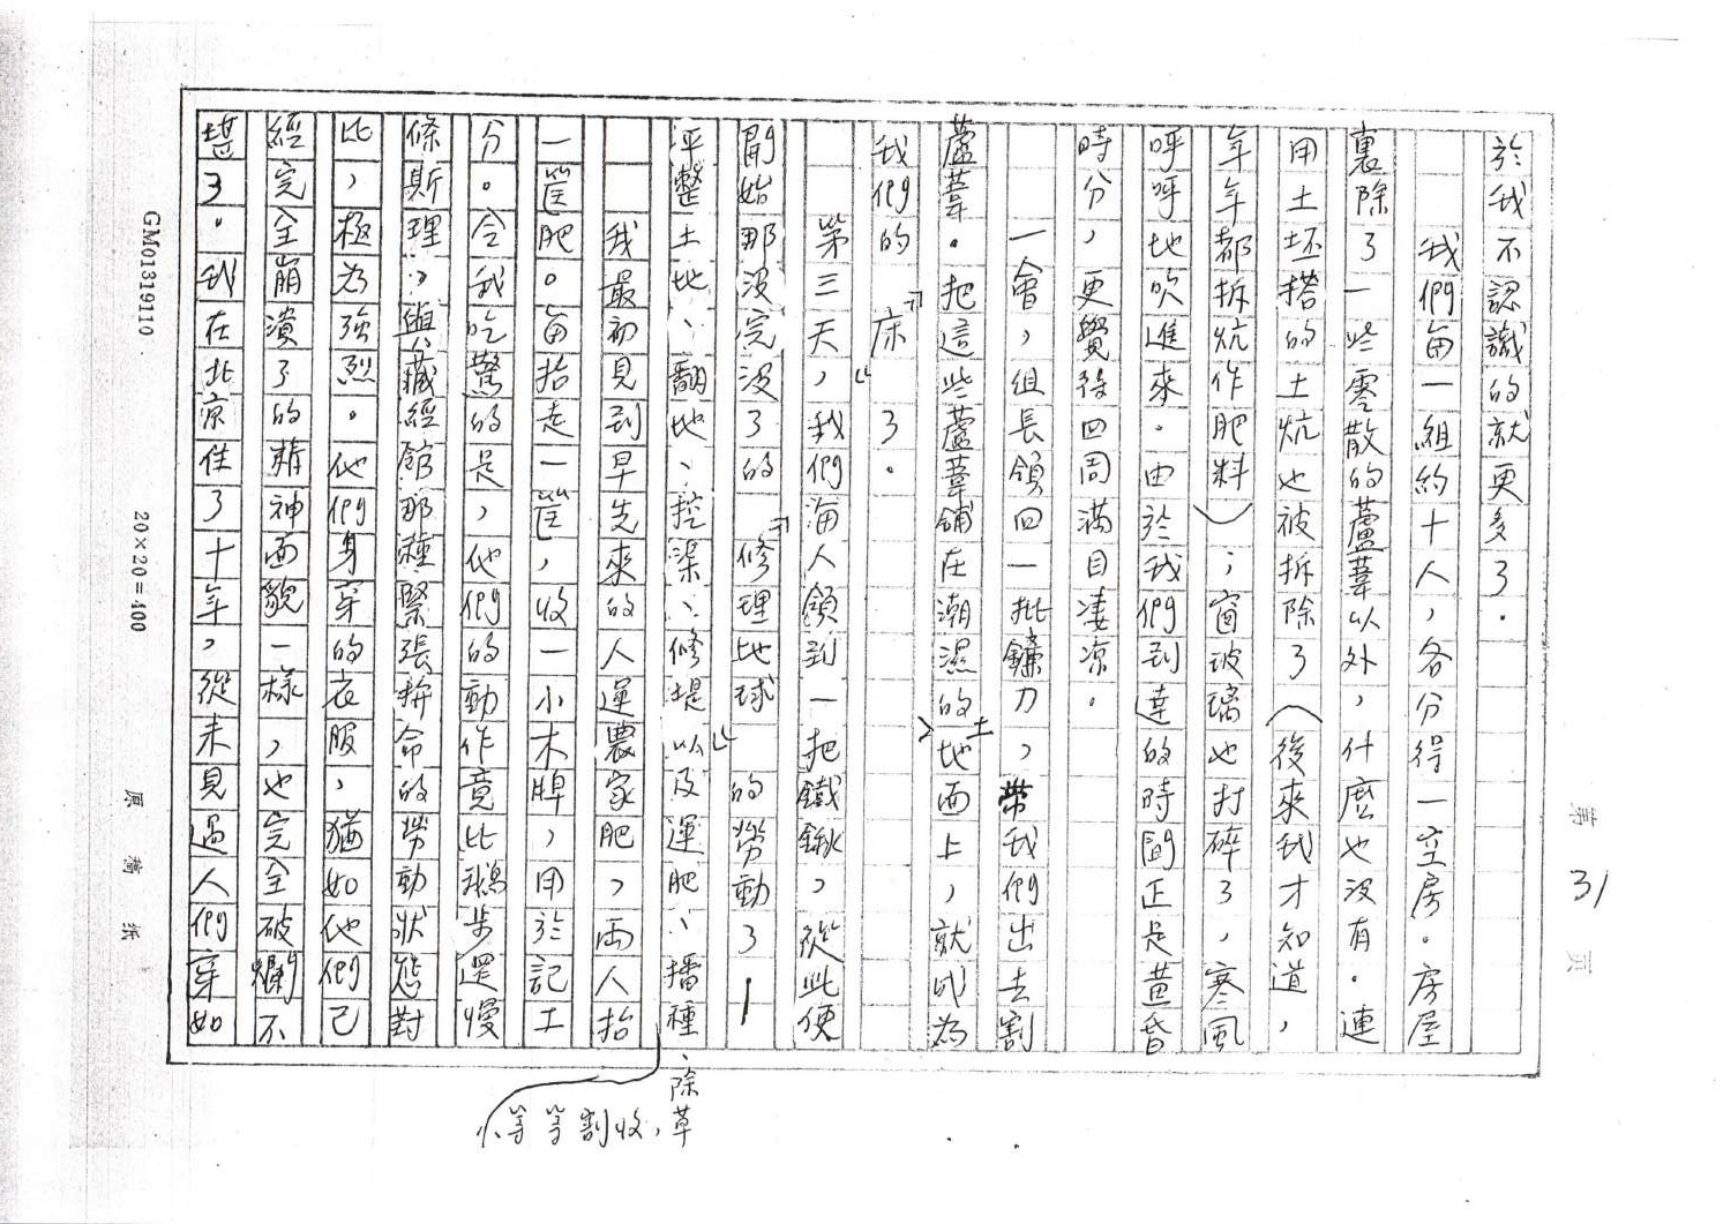 於我不認識的就更多了.
我們每一組約十人，各分得一空房。房屋
裏除了一些零散的蘆葦以外，什麼也沒有。連
用土坯搭的土炕也被拆除了（後來我才知道，
年年都拆炕作肥料）；窗玻璃也打碎了，寒風
呼呼地吹進來。由於我們到達的時間正是黃昏
時分，更覺得四周滿目凄凉。
一會，組長領回一批鐮刀，帶我們出去割
蘆葦。把這些蘆葦鋪在潮濕的土地面上，就成為
我們的『床』了。
第三天，我們海人領到一把鐵鍬，從此便
開始那沒完沒了的『修理地球』的勞動了—
平整土地、翻地、挖渠、修堤以及運肥、播種、除草
，收割等等。
我最初見到早先來的人運農家肥，兩人抬
一筐肥。每抬走一筐，收一小木牌，用於記工
分。令我吃驚的是，他們的動作竟比鵝步還慢
條斯理，與藏經館那種緊張拚命的勞動狀態對
比，極為強烈。他們身穿的衣服，猶如他們已
經完全崩潰了的精神面貌一樣，也完全破爛不
堪了。我在北京住了十年，從未見過人們穿如
第 31 页
GM01319110
20×20=400
原稿紙